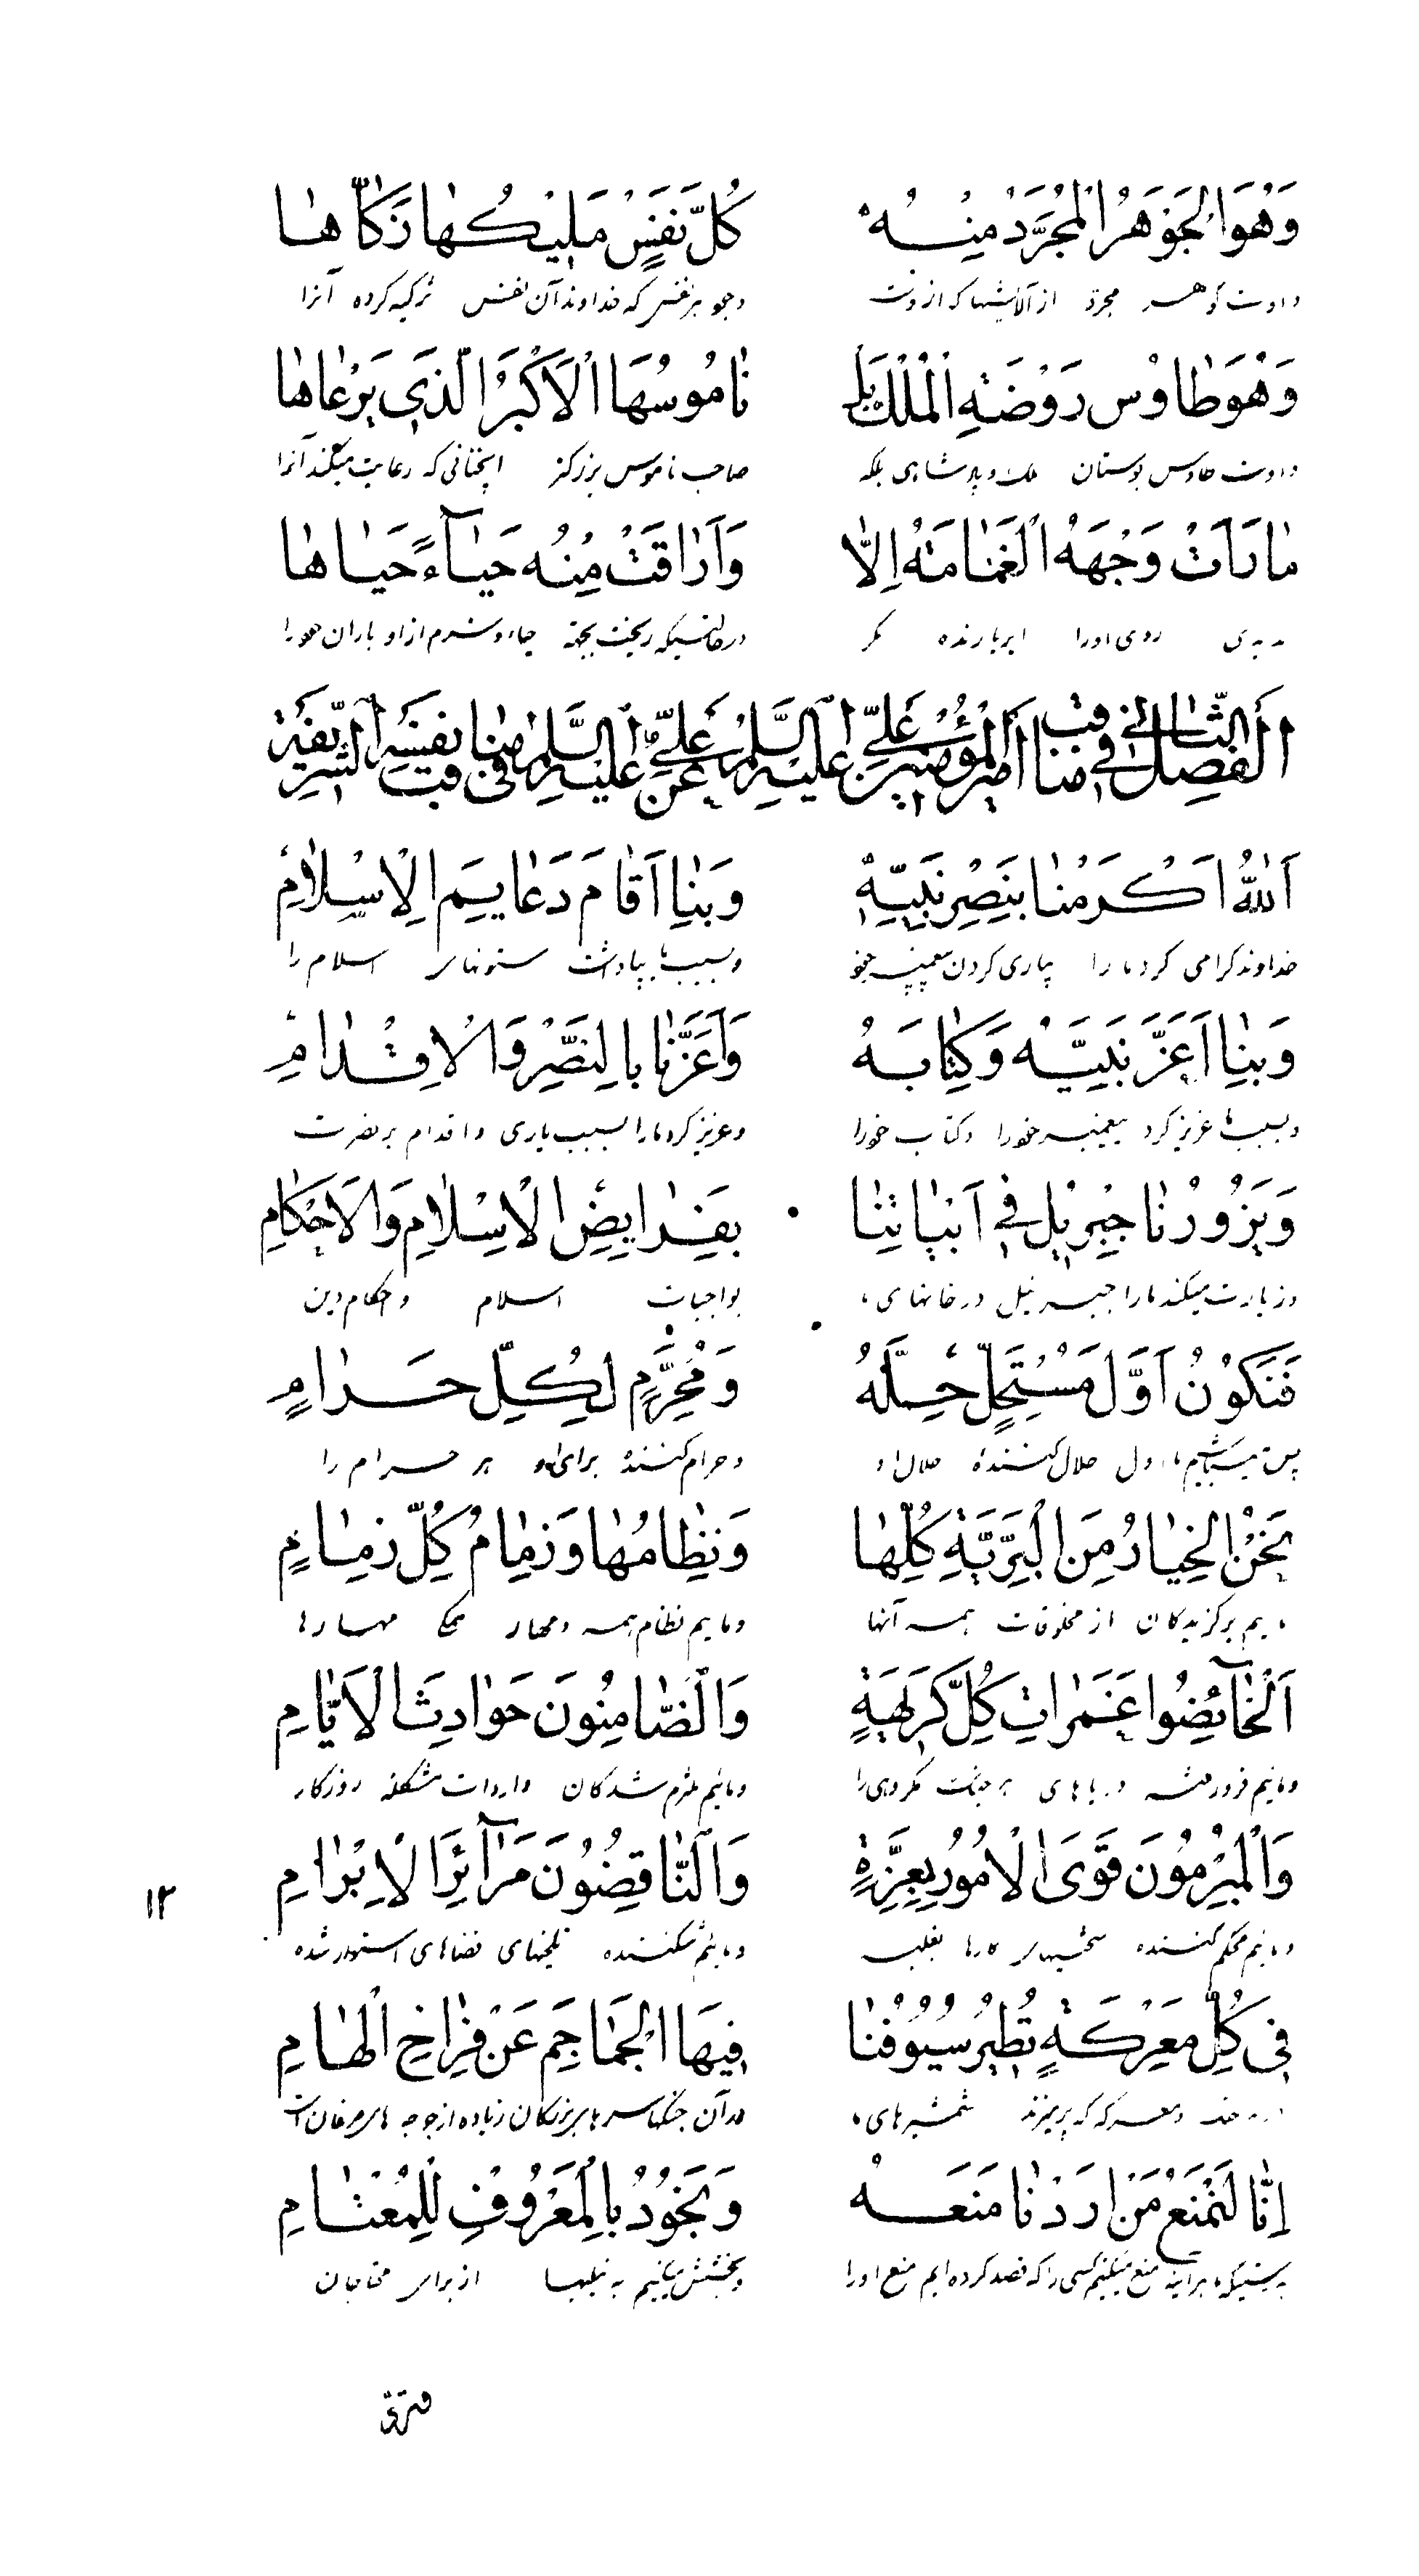 وَهُوَ الْجَوْهَرُ الْمُجَرَّدُ مِنْهُ كُلُّ نَفْسٍ مَلِيكُهَا زَكَّاهَا
و اوست گوهر مجرد از آلایشها که از اوست هر نفس که خداوند آن نفس تزکیه کرده آنرا
وَهْوَ طَاوُسُ رَوْضَةِ الْمُلْكِ بَلْ نَامُوسُهَا الْأَكْبَرُ الَّذِی يَرْعَاهَا
و اوست طاوس بوستان ملک و پادشاهی بلکه صاحب ناموس بزرگتر آنچنانی که رعایت میکند آنرا
مَا رَأَتْ وَجْهَهُ الْغَمَامَةُ إِلَّا وَأَرَاقَتْ مِنْهُ حَيَاءً حَيَاهَا
روی او را ابر بارنده مگر حیاء و شرم از او باران خود را
اَلْفَصْلُ الثَّانِی فِی مَنَاقِبِ أَمِيرِ الْمُؤْمِنِينَ عَلِیٍّ عَلَيْهِ السَّلَامُ عَنْ عَلِیٍّ عَلَيْهِ السَّلَامُ فِی مَنَاقِبِ نَفْسِهِ الشَّرِيفَةِ
اَللهُ أَكْرَمَنَا بِنَصْرِ نَبِيِّهِ وَبِنَا أَقَامَ دَعَايِمَ الْإِسْلَامِ
خداوند گرامی کرد ما را بیاری کردن پیغمبر خود و بسبب ما بپا داشت ستونهای اسلام را
وَبِنَا أَعَزَّ نَبِيَّهُ وَكِتَابَهُ وَأَعَزَّنَا بِالنَّصْرِ وَالْإِقْدَامِ
و بسبب ما عزیز کرد پیغمبر خود را و کتاب خود را و عزیز کرد ما را بسبب یاری و اقدام بر نصرت
وَيَزُورُنَا جِبْرِيلُ فِی أَبْيَاتِنَا بِفَرَايِضِ الْإِسْلَامِ وَالْأَحْكَامِ
و زیارت میکند ما را جبرئیل در خانهای ما بواجبات اسلام و احکام دین
فَنَكُونُ أَوَّلَ مُسْتَحِلٍّ حِلَّهُ وَمُحَرِّمٍ لِكُلِّ حَرَامٍ
پس میباشیم ما اول حلال کنندهٔ حلال او و حرام کنندهٔ برای او هر حرام را
نَحْنُ الْخِيَارُ مِنَ الْبَرِيَّةِ كُلِّهَا وَنِظَامُهَا وَزِمَامُ كُلِّ زِمَامٍ
مائیم برگزیدگان از مخلوقات همه آنها و مائیم نظام همه و مهار همگی مهارها
اَلْخَائِضُوا غَمَرَاتِ كُلِّ كَرِيهَةٍ وَالضَّامِنُونَ حَوَادِثَ الْأَيَّامِ
و مائیم فرو رفته دریاهای هر جنگ مکروهی را و مائیم ملتزم شدگان واردات مشکله روزگار
وَالْمُبْرِمُونَ قُوَی الْأُمُورِ بِعِزَّةٍ وَالنَّاقِضُونَ مَرَائِرَ الْإِبْرَامِ
و مائیم محکم کننده کارها بغلبه و مائیم شکننده تلخیهای قضاهای استوار شده
۱۲
فِی كُلِّ مَعْرَكَةٍ تُطِيرُ سُيُوفُنَا فِيهَا الْجَمَاجِمَ عَنْ فِرَاخِ الْهَامِ
معرکه که شمشیرهای ما در آن جنگها سرهای بزرگان زیاده از جوجه های مرغان
إِنَّا لَنَمْنَعُ مَنْ أَرَدْنَا مَنْعَهُ وَنَجُودُ بِالْمَعْرُوفِ لِلْمُعْتَامِ
بدرستیکه ما هر آینه منع میکنیم کسی را که قصد کرده ایم منع او را و بخشش میکنیم به نیکیها از برای محتاجان